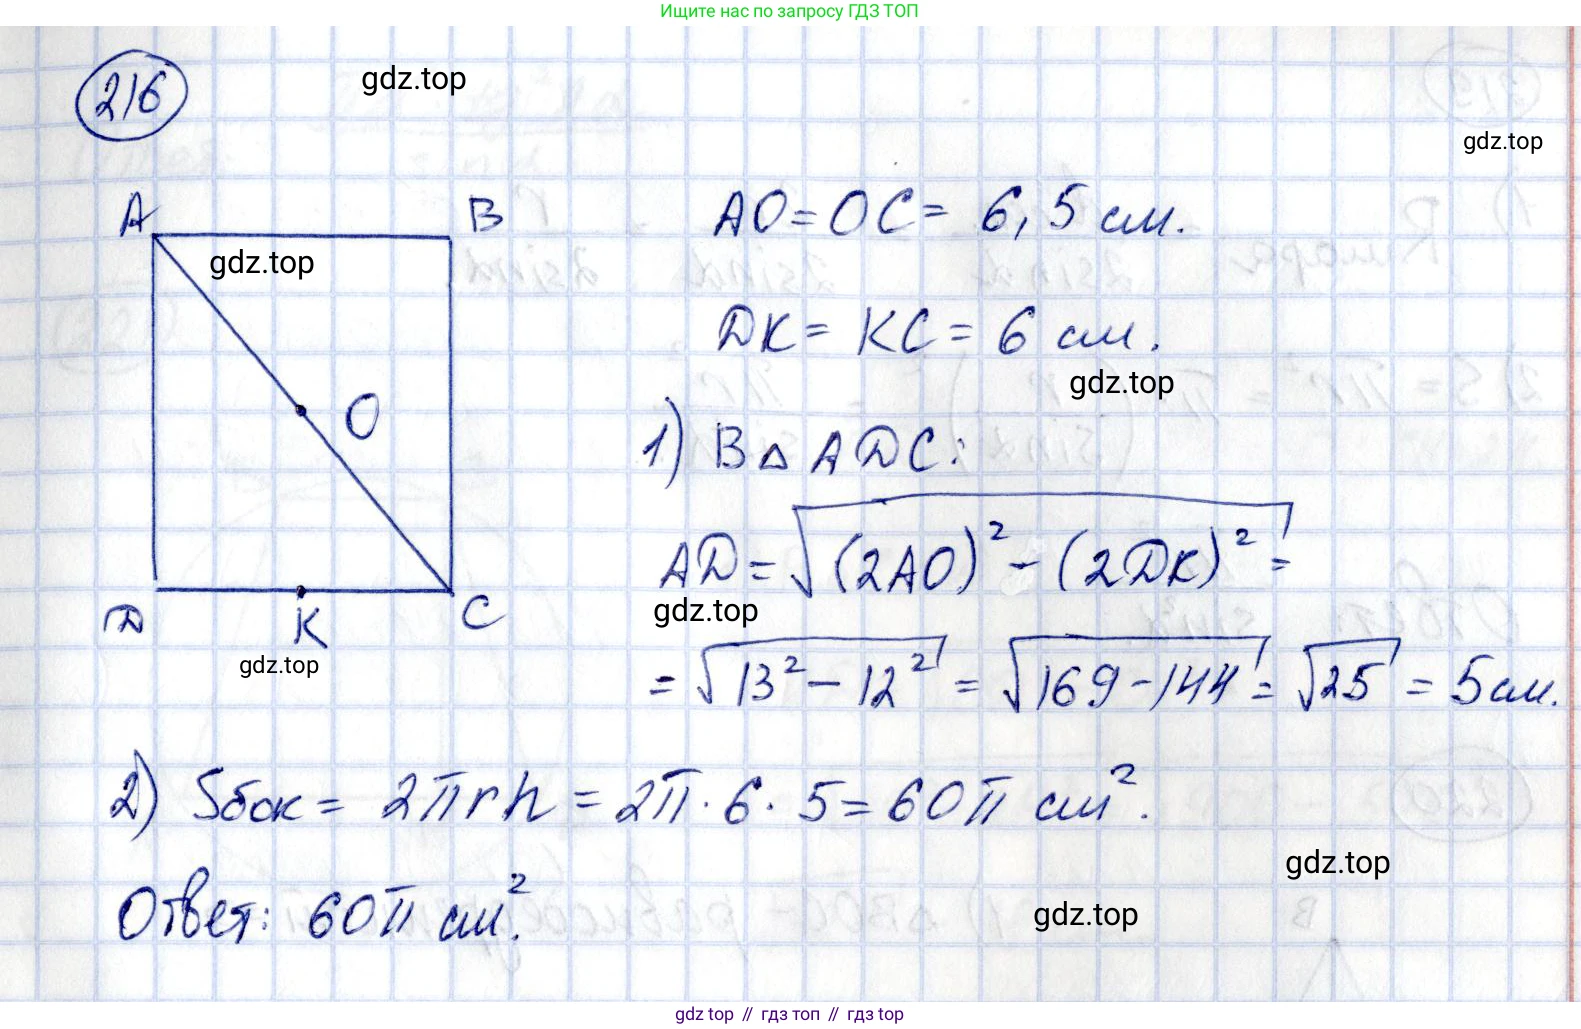 Ищите нас по запросу ГДЗ ТОП
216
gdz.top
gdz.top
A
B
gdz.top
AO = OC = 6,5 см.
DK = KC = 6 см.
gdz.top
O
1) В △ ADC:
AD = √(2AO)² - (2DK)² =
gdz.top
D
K
C
gdz.top
= √13² - 12² = √169 - 144 = √25 = 5 см.
2) Sбок = 2πrh = 2π · 6 · 5 = 60π см².
gdz.top
Ответ: 60π см².
gdz.top
gdz.top // гдз топ // гдз top